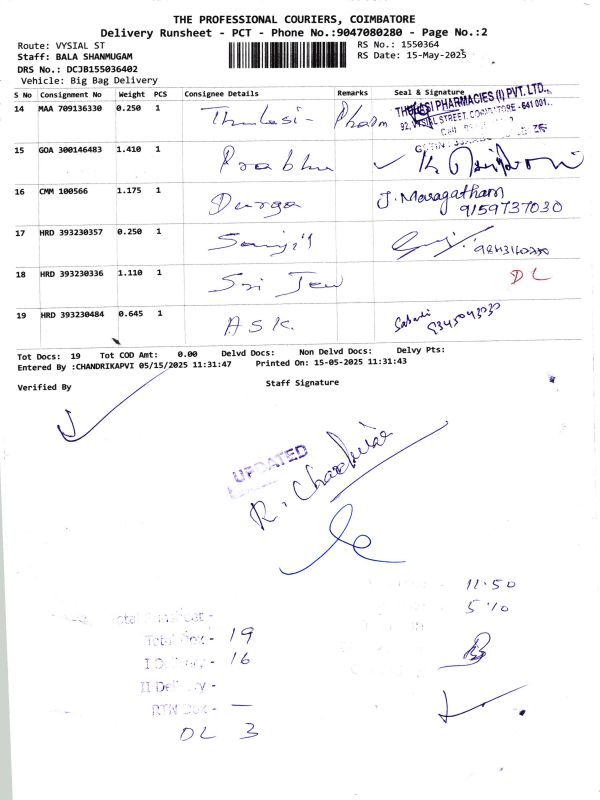 THE PROFESSIONAL COURIERS, COIMBATORE
Delivery Runsheet - PCT - Phone No.:9047080280 - Page No.:2
Route: VYSIAL ST RS No.: 1550364
Staff: BALA SHANMUGAM RS Date: 15-May-2025
DRS No.: DCJB155036402
Vehicle: Big Bag Delivery
S No Consignment No Weight PCS Consignee Details Remarks Seal & Signature
14 MAA 709136330 0.250 1 Thulasi - Pharm THULASI PHARMACIES (I) PVT. LTD.,
92, VYSIAL STREET, COIMBATORE - 641 001.
15 GOA 300146483 1.410 1 Prabhu
16 CMM 100566 1.175 1 Durga J. Maragatham
9159737030
17 HRD 393230357 0.250 1
18 HRD 393230336 1.110 1 Sri Jew DL
19 HRD 393230484 0.645 1 ASK
Tot Docs: 19 Tot COD Amt: 0.00 Delvd Docs: Non Delvd Docs: Delvy Pts:
Entered By :CHANDRIKAPVI 05/15/2025 11:31:47 Printed On: 15-05-2025 11:31:43
Verified By Staff Signature
UPDATED
11.50
5
Total Box - 19
I Delivery - 16
II Delivery -
RTN Box - —
DL 3